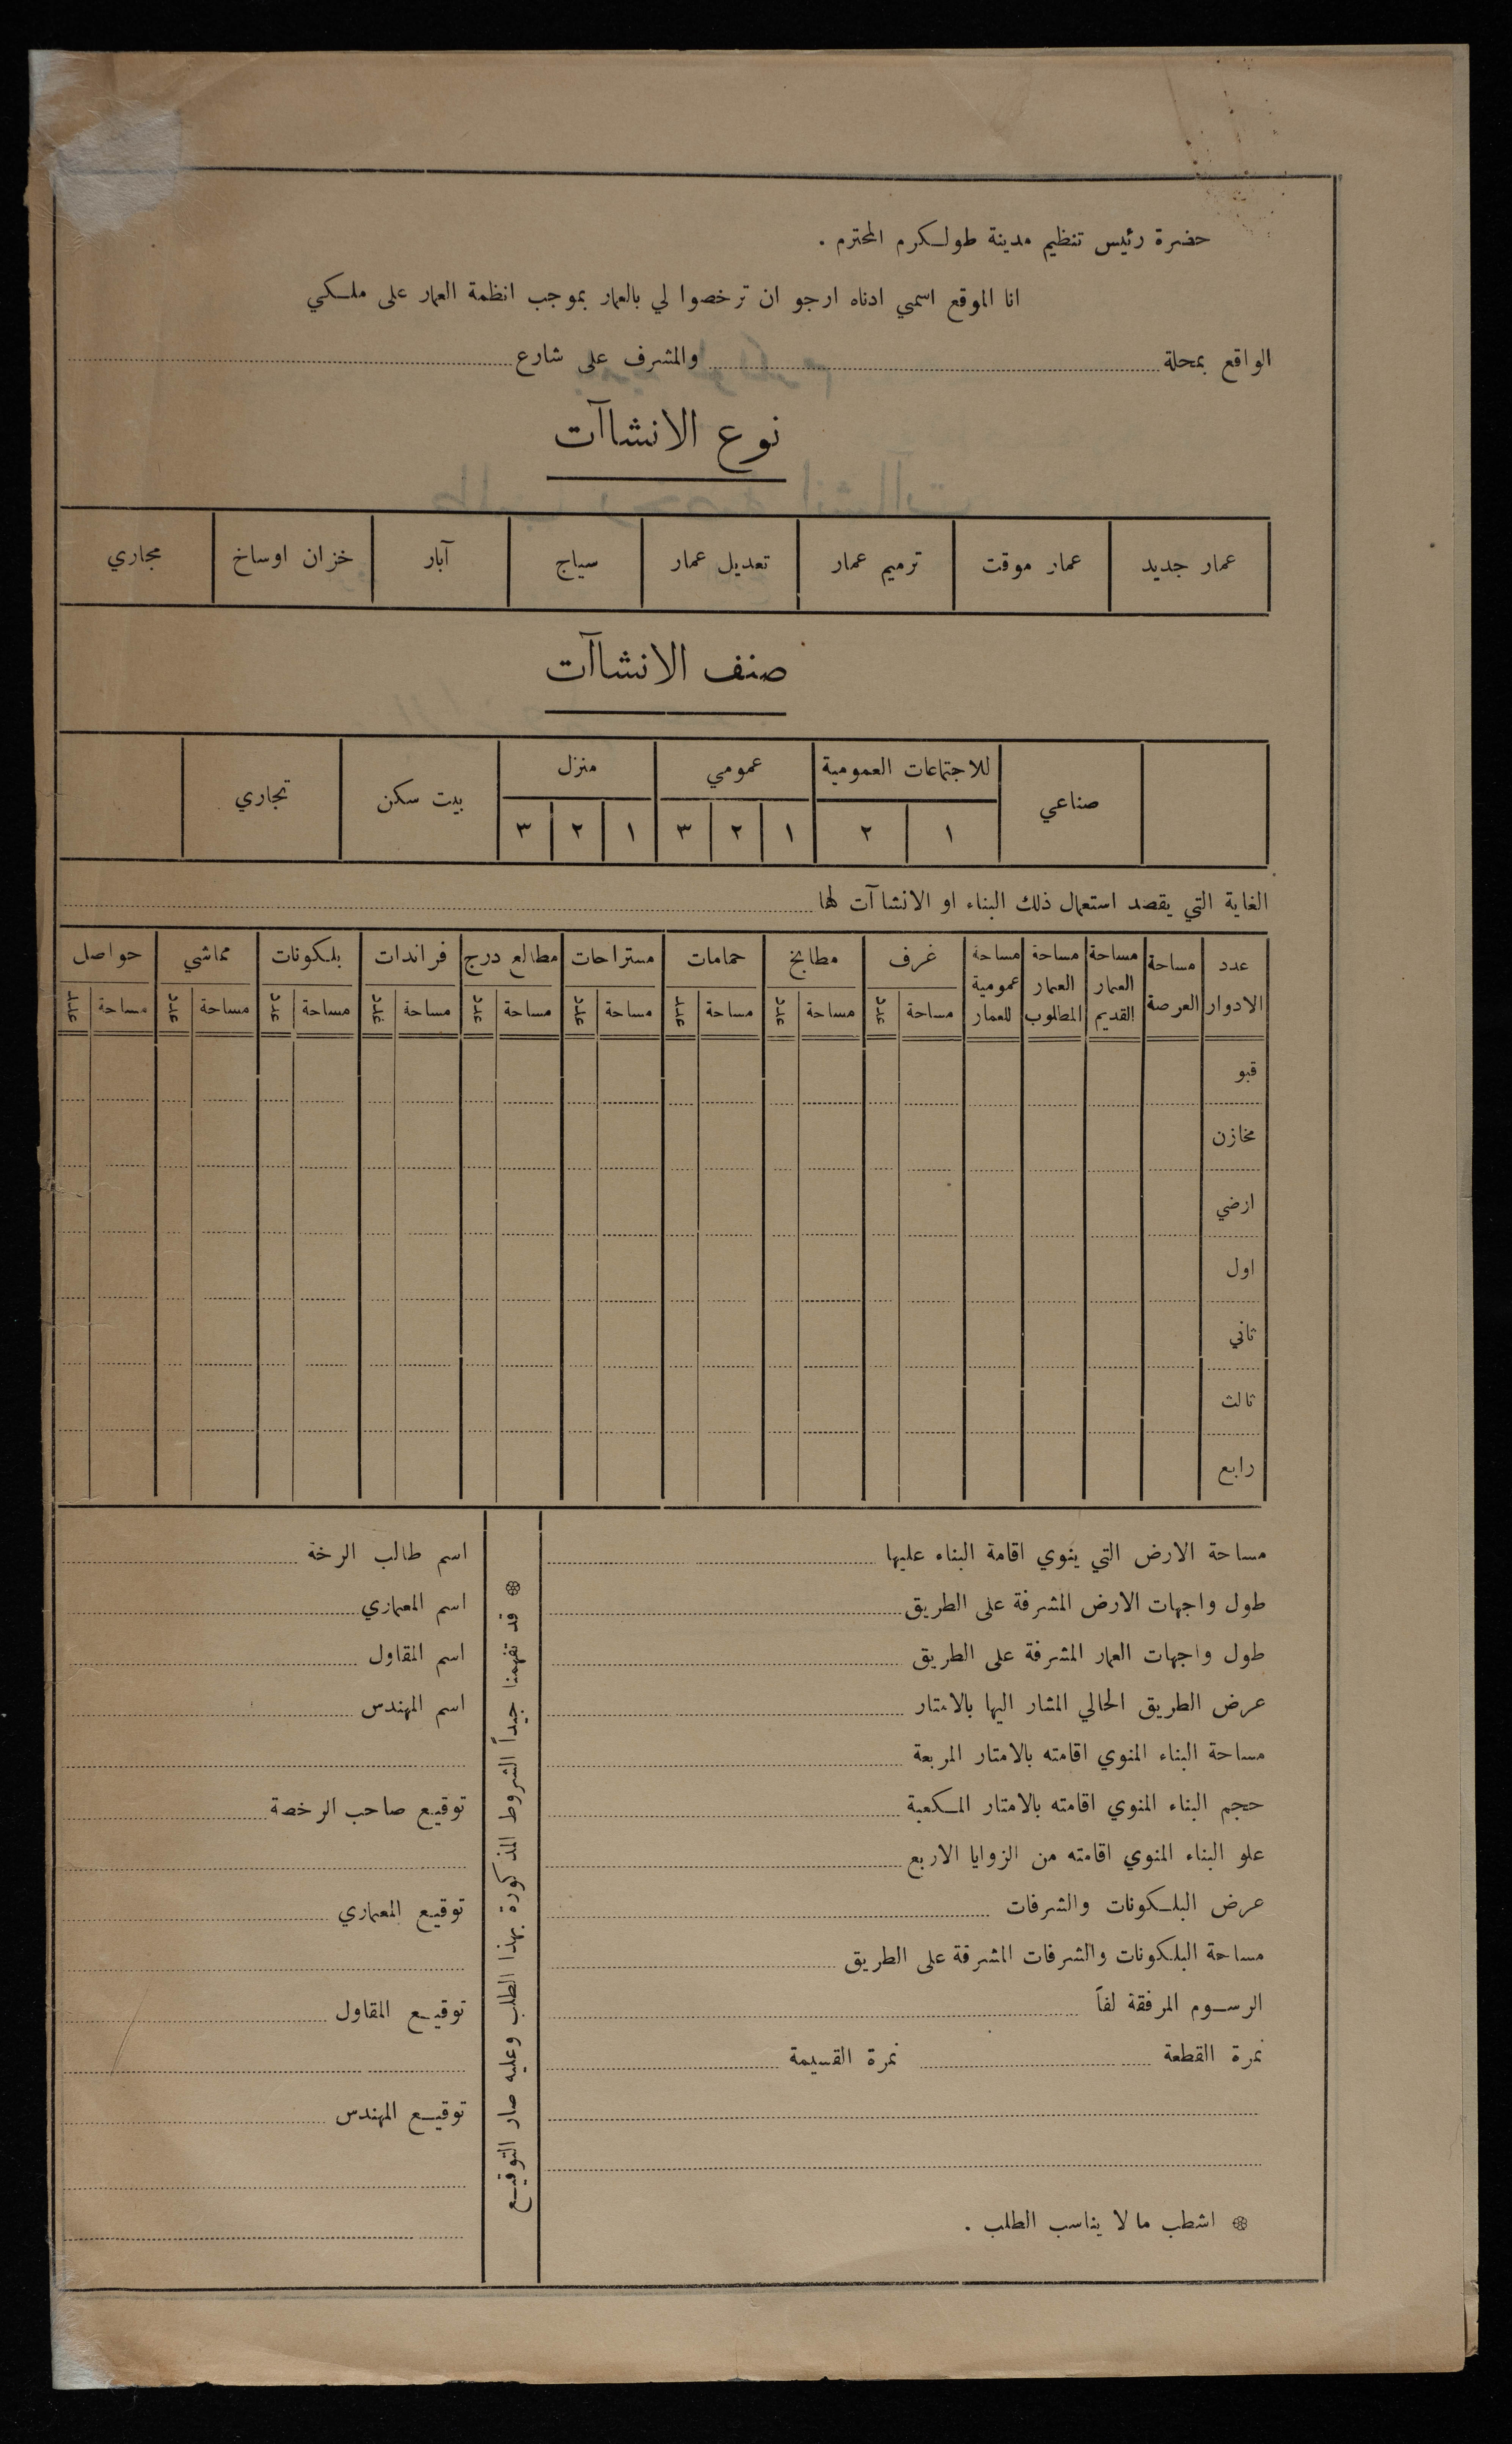 حضرة رئيس تنظيم مدينة طولكرم المحترم .
انا الموقع اسمي ادناه ارجو ان ترخصوا لي بالعمار بموجب انظمة العمار على ملكي
الواقع بمحلة والمشرف على شارع
نوع الانشاآت
عمار جديد عمار موقت ترميم عمار تعديل عمار سياج آبار خزان اوساخ مجاري
صنف الانشاآت
صناعي للاجتماعات العمومية عمومي منزل بيت سكن تجاري
١ ٢ ١ ٢ ٣ ١ ٢ ٣
الغاية التي يقصد استعمال ذلك البناء او الانشاآت لها
عدد الادوار مساحة العرصة مساحة العمار القديم مساحة العمار المطلوب مساحة عمومية للعمار غرف مطابخ حمامات مستراحات مطالع درج فراندات بلكونات مماشي حواصل
مساحة عدد مساحة عدد مساحة عدد مساحة عدد مساحة عدد مساحة عدد مساحة عدد مساحة عدد مساحة عدد
قبو
مخازن
ارضي
اول
ثاني
ثالث
رابع
مساحة الارض التي ينوي اقامة البناء عليها
طول واجهات الارض المشرفة على الطريق
طول واجهات العمار المشرفة على الطريق
عرض الطريق الحالي المشار اليها بالامتار
مساحة البناء المنوي اقامته بالامتار المربعة
حجم البناء المنوي اقامته بالامتار المكعبة
علو البناء المنوي اقامته من الزوايا الاربع
عرض البلكونات والشرفات
مساحة البلكونات والشرفات المشرفة على الطريق
الرسوم المرفقة لفاً
نمرة القطعة نمرة القسيمة
❊ اشطب ما لا يناسب الطلب .
❊ قد تفهمنا جيداً الشروط المذكورة بهذا الطلب وعليه صار التوقيع
اسم طالب الرخة
اسم المعماري
اسم المقاول
اسم المهندس
توقيع صاحب الرخصة
توقيع المعماري
توقيع المقاول
توقيع المهندس